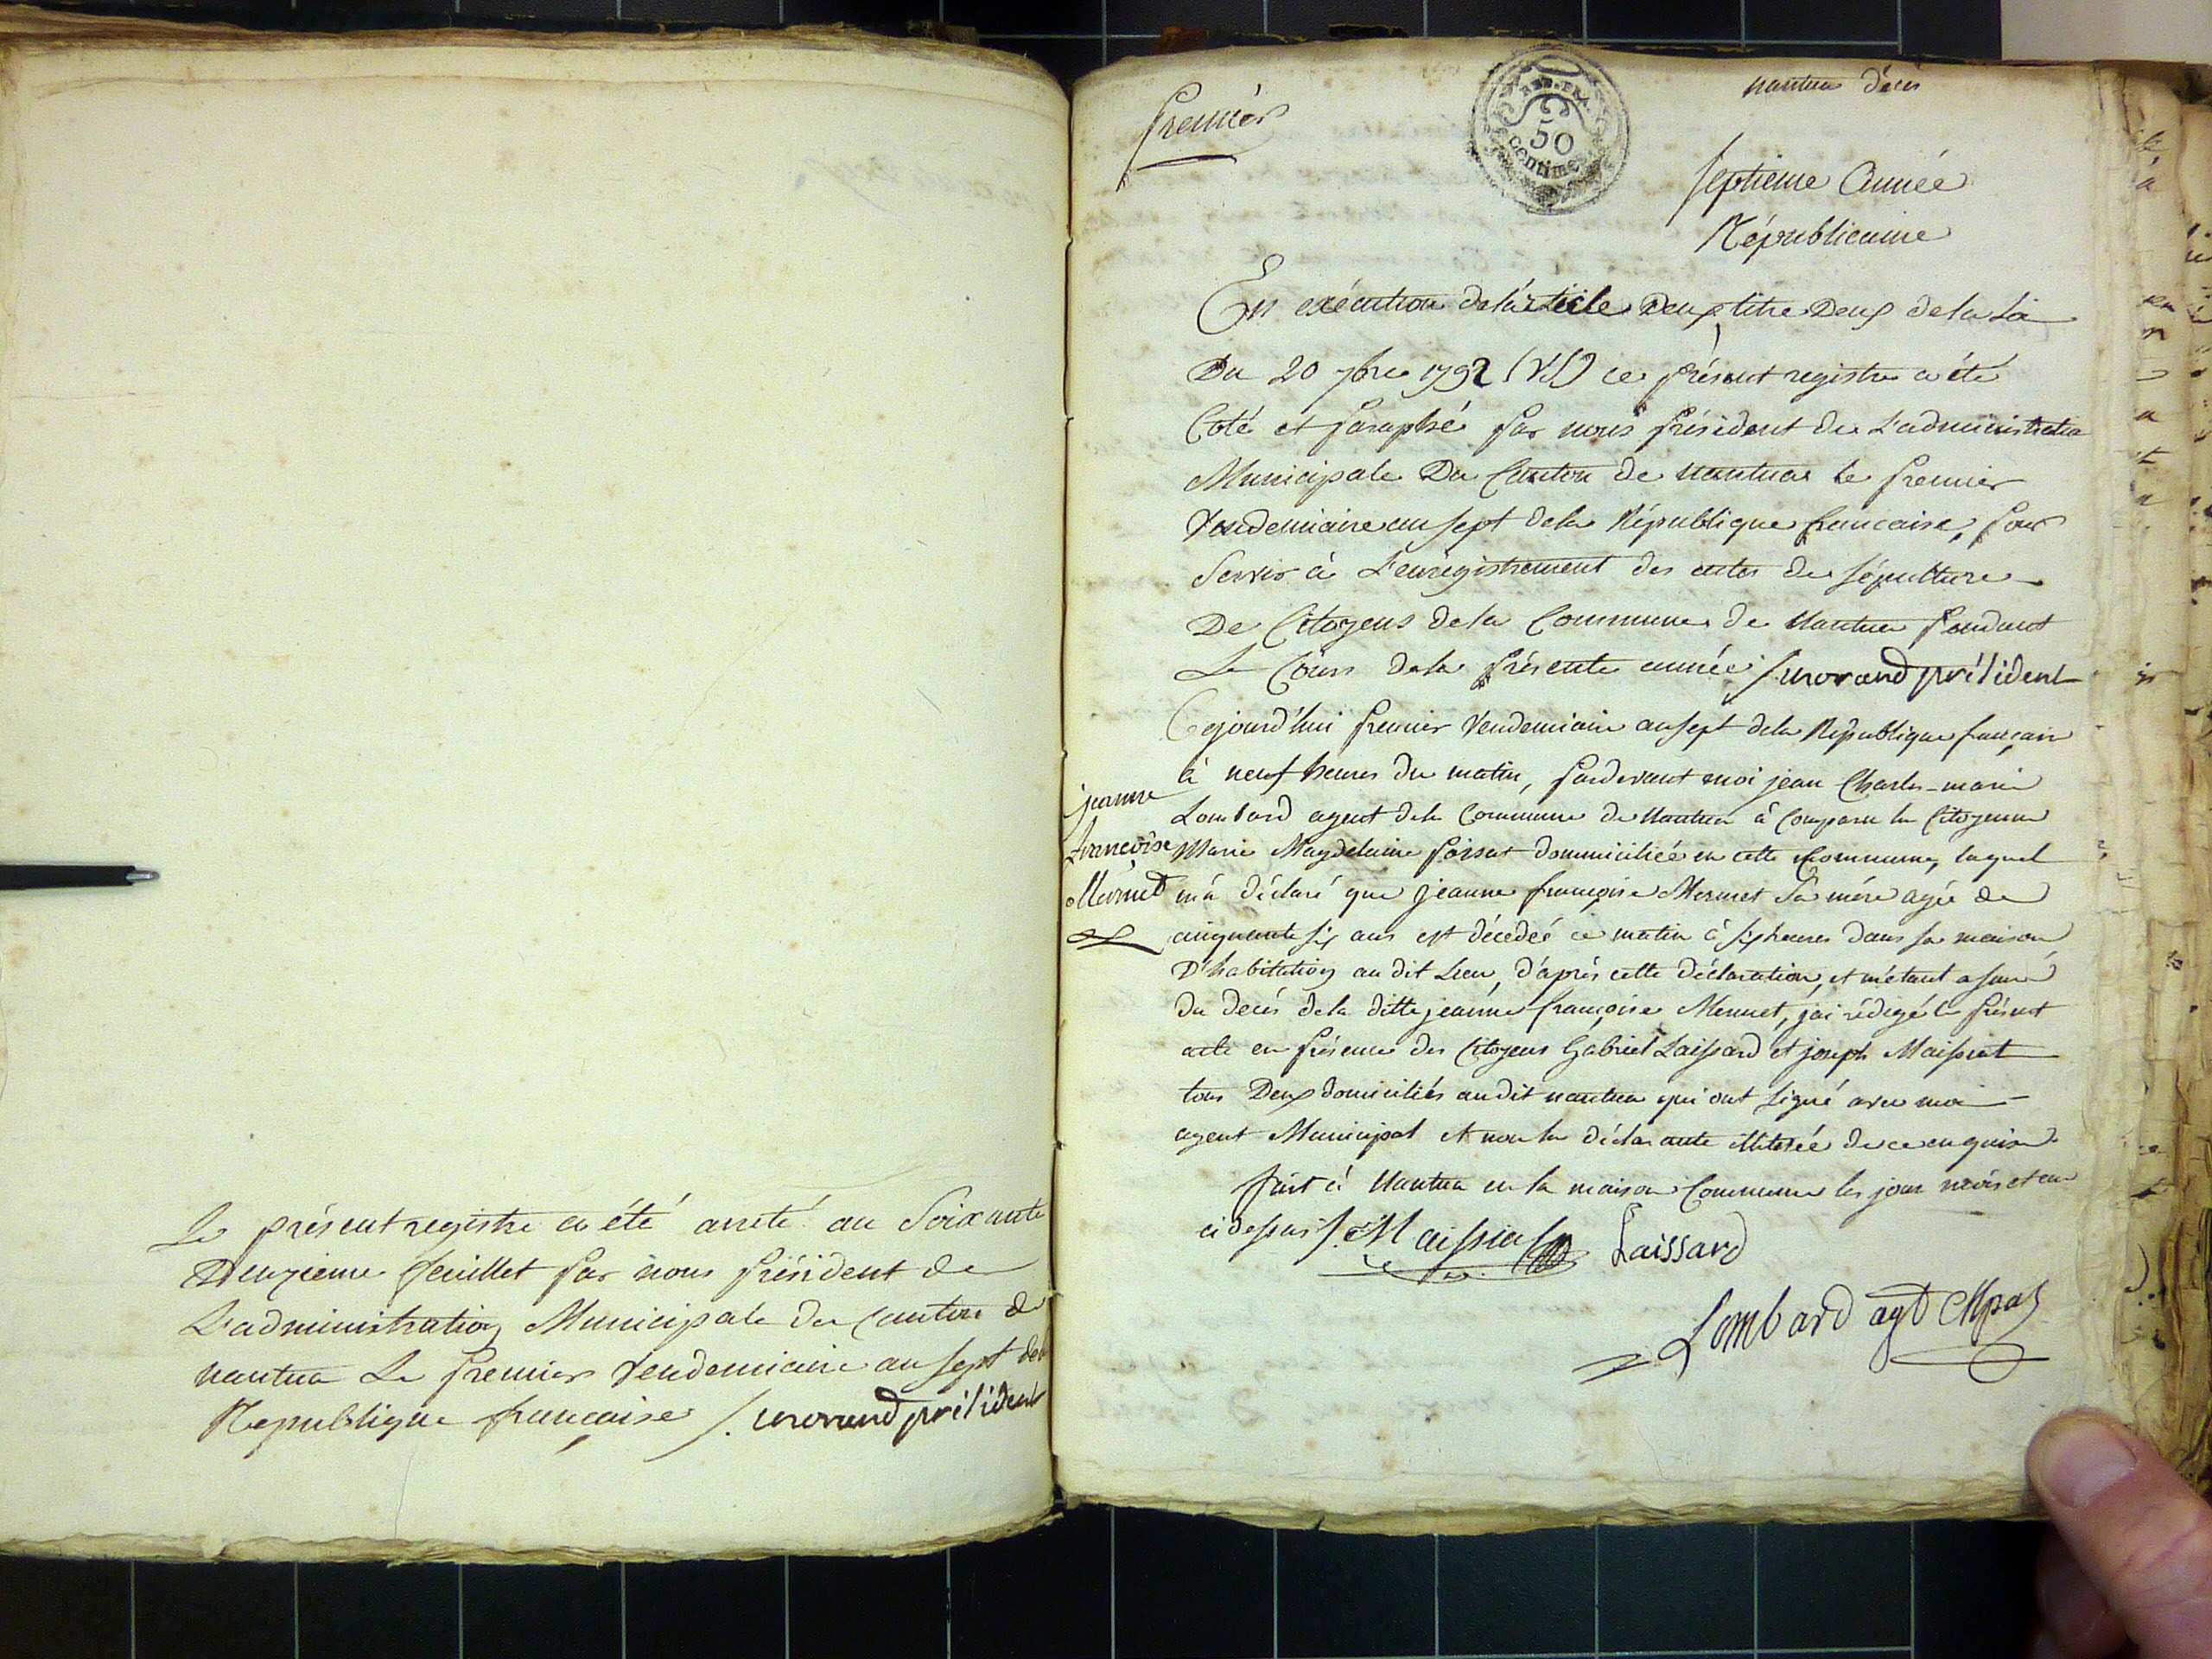 Le présent registre a été arreté au Soixante
Deuzieme feuillet par nous président de
L'administration Municipale du Canton de
nantua Le premier Vendemiaire an sept dela
Republique française /. morand président
premier
nantua décès
REP. FRA.
50
centimes
septieme Année
Républicaine
En exécution de l'article deux titre Deux dela Loi
Du 20 7bre 1792 (VS) ce présent registre a été
Coté et paraphé par nous président de L'administration
Municipale Du Canton de nantua le premier
Vendemiaire an sept dela République francaise, pour
Servir à L'enregistrement des actes de sépulture
De Citoyens dela Commune de Nantua pendant
Le Cours dela présente année /. morand président
Cejourd'hui premier Vendemiaire an sept dela République française
à neuf heures du matin, pardevant moi jean Charles-marie
Lombard agent dela Commune de Nantua à Comparu la Citoyenne
Marie Magdelaine poisat dommiciliée en cette Commune, laquel
m'a déclaré que jeanne françoise Mermet Sa mére agée de
cinquante six ans est décedeé ce matin à six heures dans sa maison
D'habitation au dit Lieu, d'aprés cette déclaration, et m'étant assuré
du decés dela ditte jeanne françoise Mermet, j'ai rédigé le présent
acte en présence des Citoyens Gabriel Laissard et joseph Maissiat
tous Deux domiciliés audit nantua qui ont signé avec moi
agent Municipal et non la déclarante illiterée de ce enquise
fait à Nantua en la maison Commune les jour mois et an
ci dessus /. Maissiat Laissard
Lombard agt Mpal
jeanne
françoise
Mermet